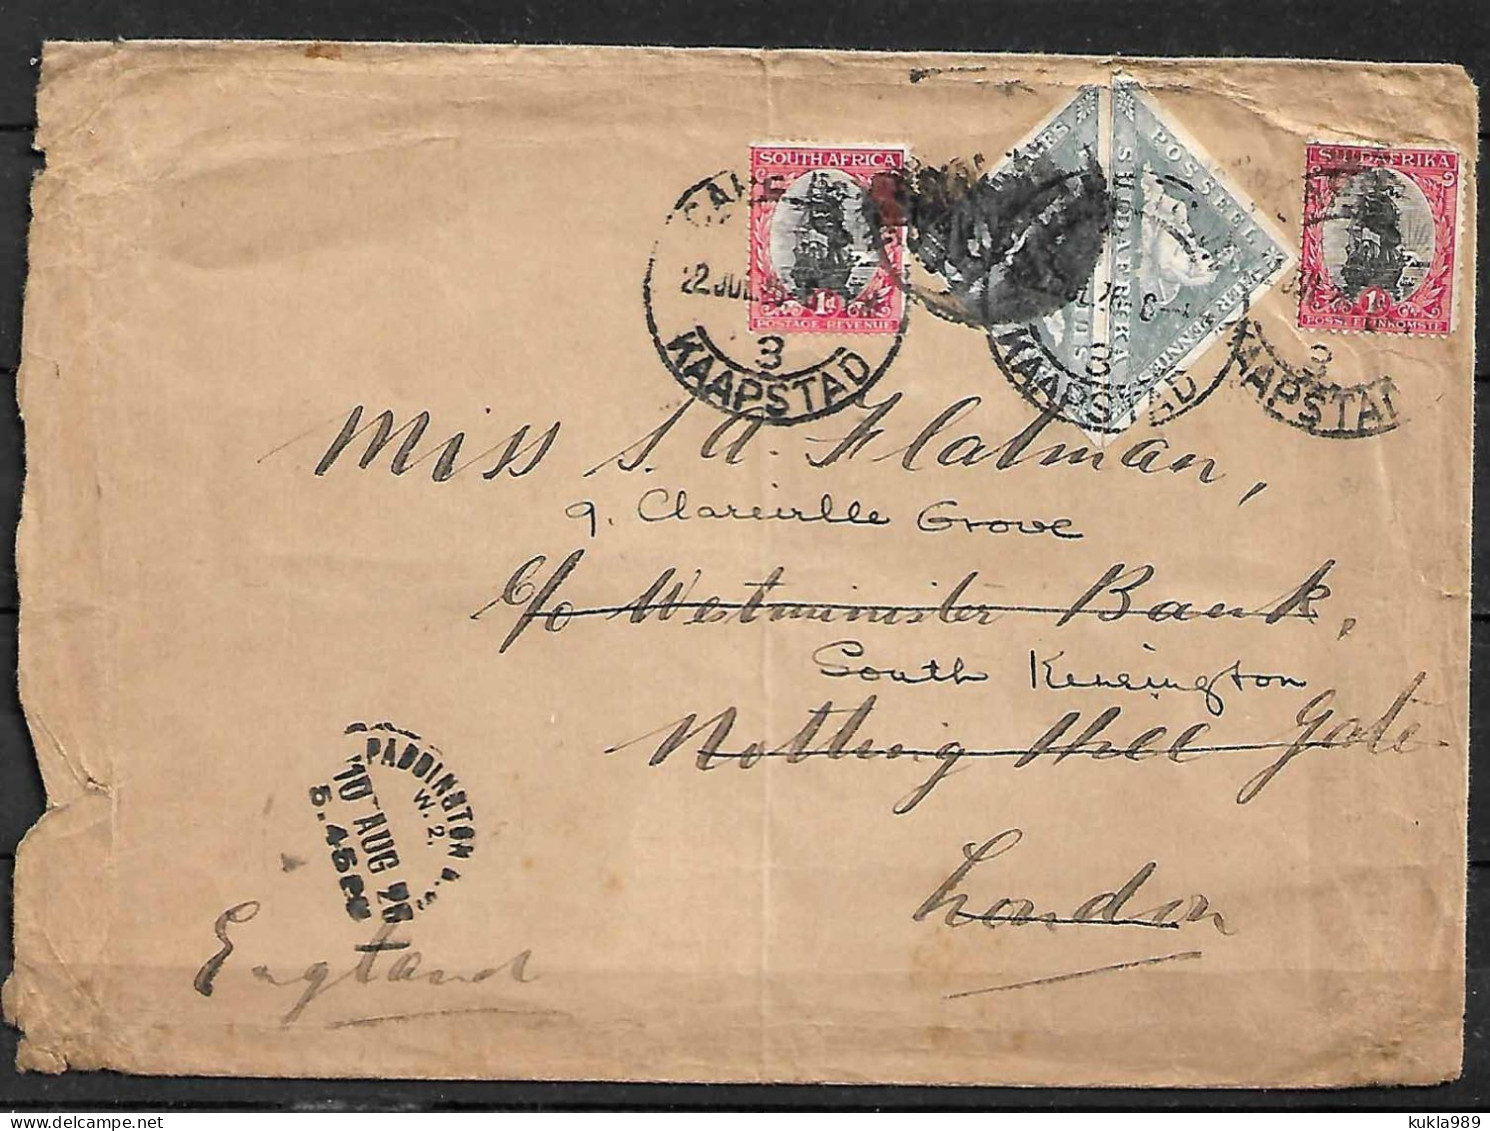 SOUTH AFRICA
1d
POSTAGE-REVENUE
22 JUL
3
KAAPSTAD
POSSEËL
SUIDAFRIKA
VIER PENNIES
3
KAAPSTAD
SUIDAFRIKA
1d
POSSEEL-INKOMSTE
3
KAAPSTAD
Miss S. A. Flatman,
9. Clareville Grove
c/o Westminister Bank,
South Kensington
Notting Hill Gate
London
England
PADDINGTON
W.2.
10 AUG 26
5.45 PM
kukla989